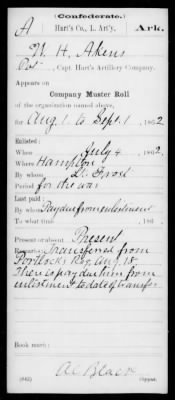 (Confederate.)
A Hart's Co., L. Art'y. Ark.
W. H. Akens
Pvt, Capt. Hart's Artillery Company.
Appears on
Company Muster Roll
of the organization named above,
for Aug 1 to Sept 1, 1862
Enlisted:
When July 4, 1862
Where Hampton
By whom Lt. Frost
Period for the war
Last paid:
By whom Pay due from enlistment
To what time , 186 .
Present or absent Present
Remarks: Transferred from
Portlock's Reg. Aug. 18.
There is pay due him from
enlistment to date of transfer
Book mark:
A C Black
(642) Copyist.